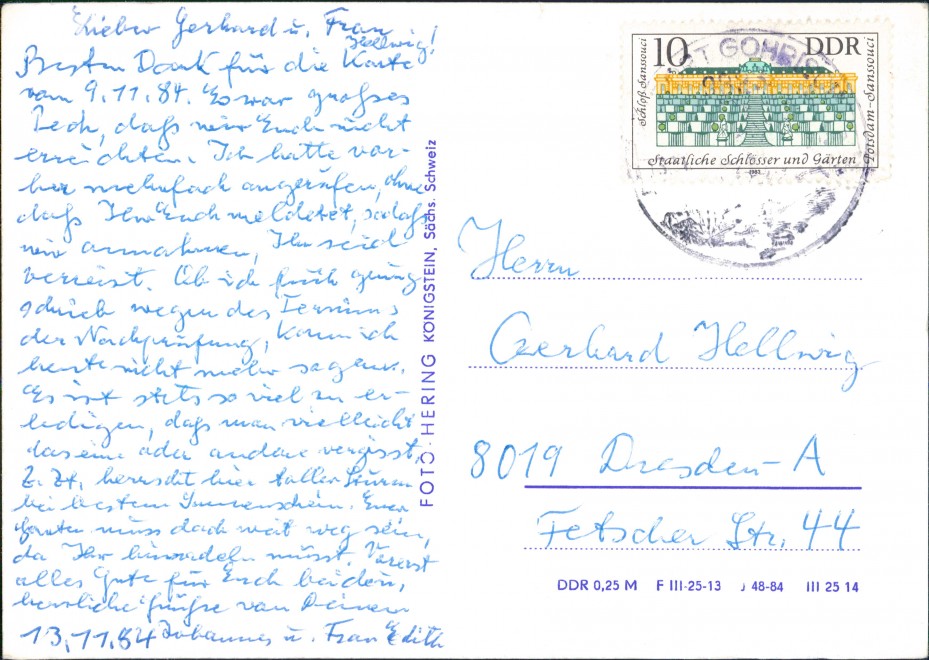 Lieber Gerhard u. Frau
Hellwig!
Besten Dank für die Karte
vom 9.11.84. Es war großes
Pech, daß wir Euch nicht
erreichten. Ich hatte vor-
her mehrfach angerufen, ohne
daß Ihr Euch meldetet, sodaß
wir annahmen, Ihr seid
verreist. Ob ich früh genug
schrieb wegen des Termins
der Nachprüfung, kann ich
heute nicht mehr sagen.
Es ist stets so viel zu er-
ledigen, daß man vielleicht
das eine oder andere vergisst.
Z. Zt. herrscht hier toller Sturm
bei bestem Sonnenschein. Euer
Garten muss doch weit weg sein,
da Ihr hinradeln müsst. Vorerst
alles Gute für Euch beiden,
herzliche Grüße von Deinem
13.11.84 Johannes u. Frau Edith
FOTO-HERING KÖNIGSTEIN, Sächs. Schweiz
10 DDR
Schloß Sanssouci
Potsdam-Sanssouci
Staatliche Schlösser und Gärten
1983
GOHRISCH
Herrn
Gerhard Hellwig
8019 Dresden-A
Fetscher Str. 44
DDR 0,25 M F III-25-13 J 48-84 III 25 14